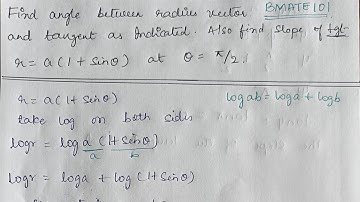 Find angle between radius vector BMATE101
and tangent as indicated. Also find slope of tgt
r = a(1 + sinθ) at θ = π/2.
r = a(1 + sinθ)
log ab = loga + logb
take log on both sides
logr = log a (1 + sinθ)
a b
logr = loga + log(1 + sinθ)